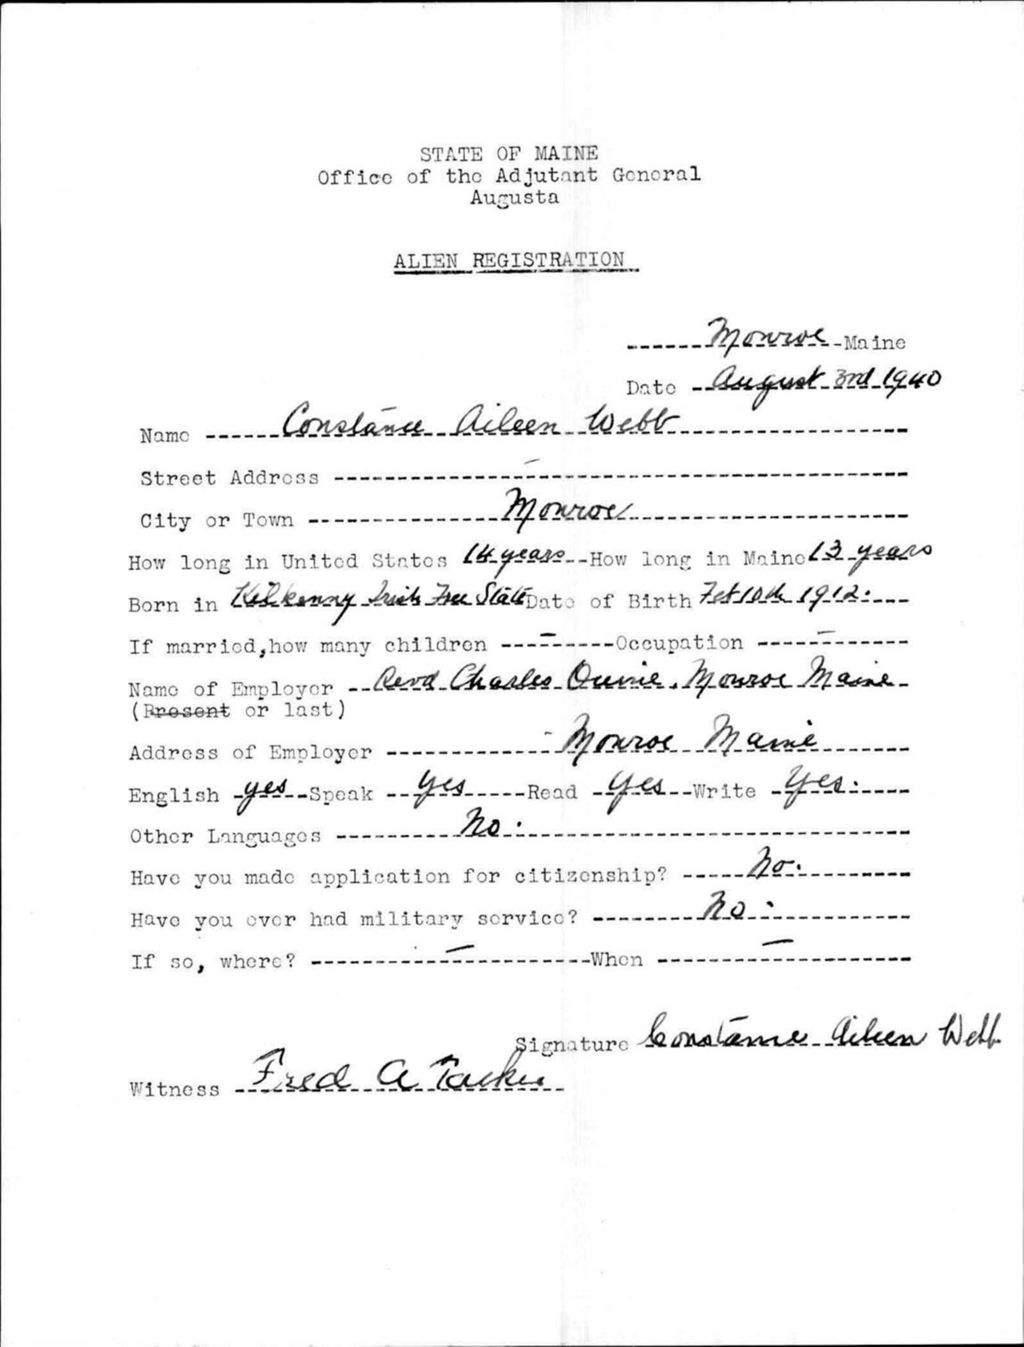 STATE OF MAINE
Office of the Adjutant General
Augusta
ALIEN REGISTRATION
Monroe Maine
Date August 3rd 1940
Name Constance Aileen Webb
Street Address –
City or Town Monroe
How long in United States 14 years How long in Maine 13 years
Born in Kilkenny Irish Free State Date of Birth Feb 10th 1912.
If married, how many children – Occupation –
Name of Employer Revd Charles Monroe Maine
(Present or last)
Address of Employer - Monroe Maine
English yes Speak yes Read yes Write yes.
Other Languages No.
Have you made application for citizenship? No.
Have you ever had military service? No.
If so, where? – When –
Signature Constance Aileen Webb
Witness Fred A